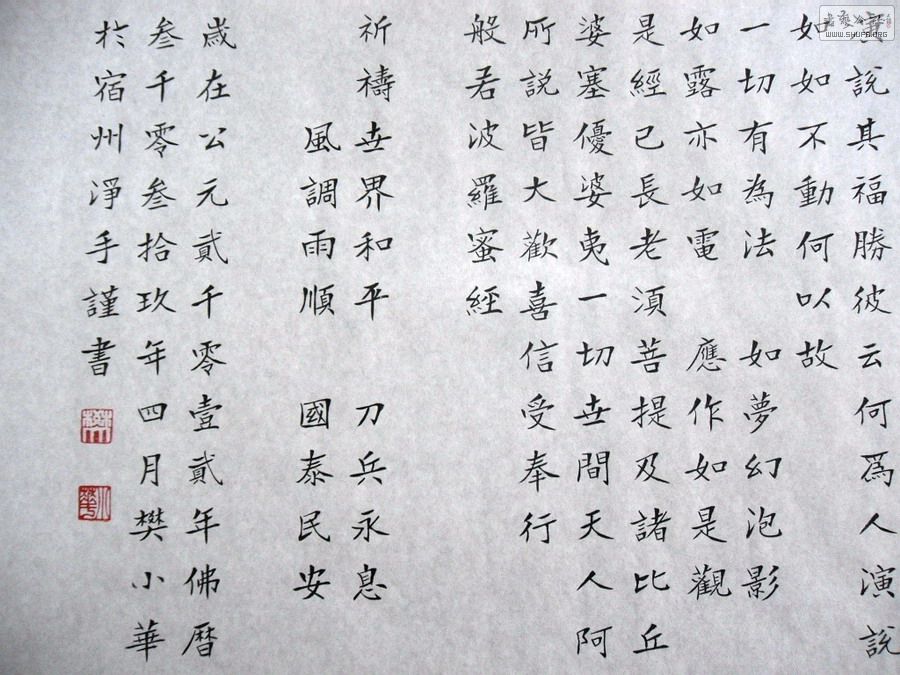 説其福勝彼云何爲人演説
如如不動何以故
一切有為法 如夢幻泡影
如露亦如電 應作如是觀
是經已長老須菩提及諸比丘
婆塞優婆夷一切世間天人阿
所説皆大歡喜信受奉行
般若波羅蜜經
祈禱世界和平 刀兵永息
風調雨順 國泰民安
歲在公元貳千零壹貳年佛曆
叁千零叁拾玖年四月樊小華
於宿州淨手謹書
WWW.SHUFA.ORG